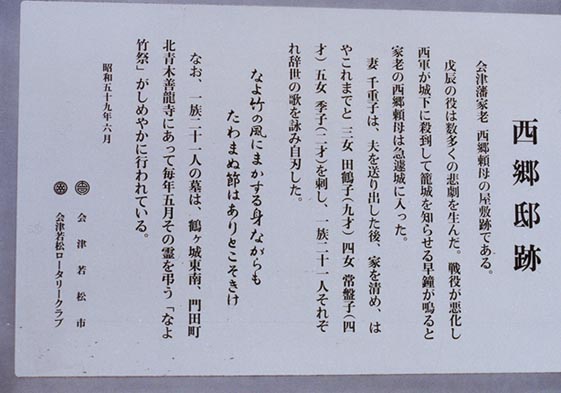 西郷邸跡
会津藩家老 西郷頼母の屋敷跡である。
戊辰の役は数多くの悲劇を生んだ。戦役が悪化し
西軍が城下に殺到して籠城を知らせる早鐘が鳴ると
家老の西郷頼母は急遽城に入った。
妻 千重子は、夫を送り出した後、家を清め、は
やこれまでと 三女 田鶴子(九才)四女 常盤子(四
才)五女 季子(二才)を刺し、一族二十一人それぞ
れ辞世の歌を詠み自刃した。
なよ竹の風にまかする身ながらも
たわまぬ節はありとこそきけ
なお、一族二十一人の墓は、鶴ヶ城東南、門田町
北青木善龍寺にあって毎年五月その霊を弔う「なよ
竹祭」がしめやかに行われている。
昭和五十九年六月
会津若松市
会津若松ロータリークラブ